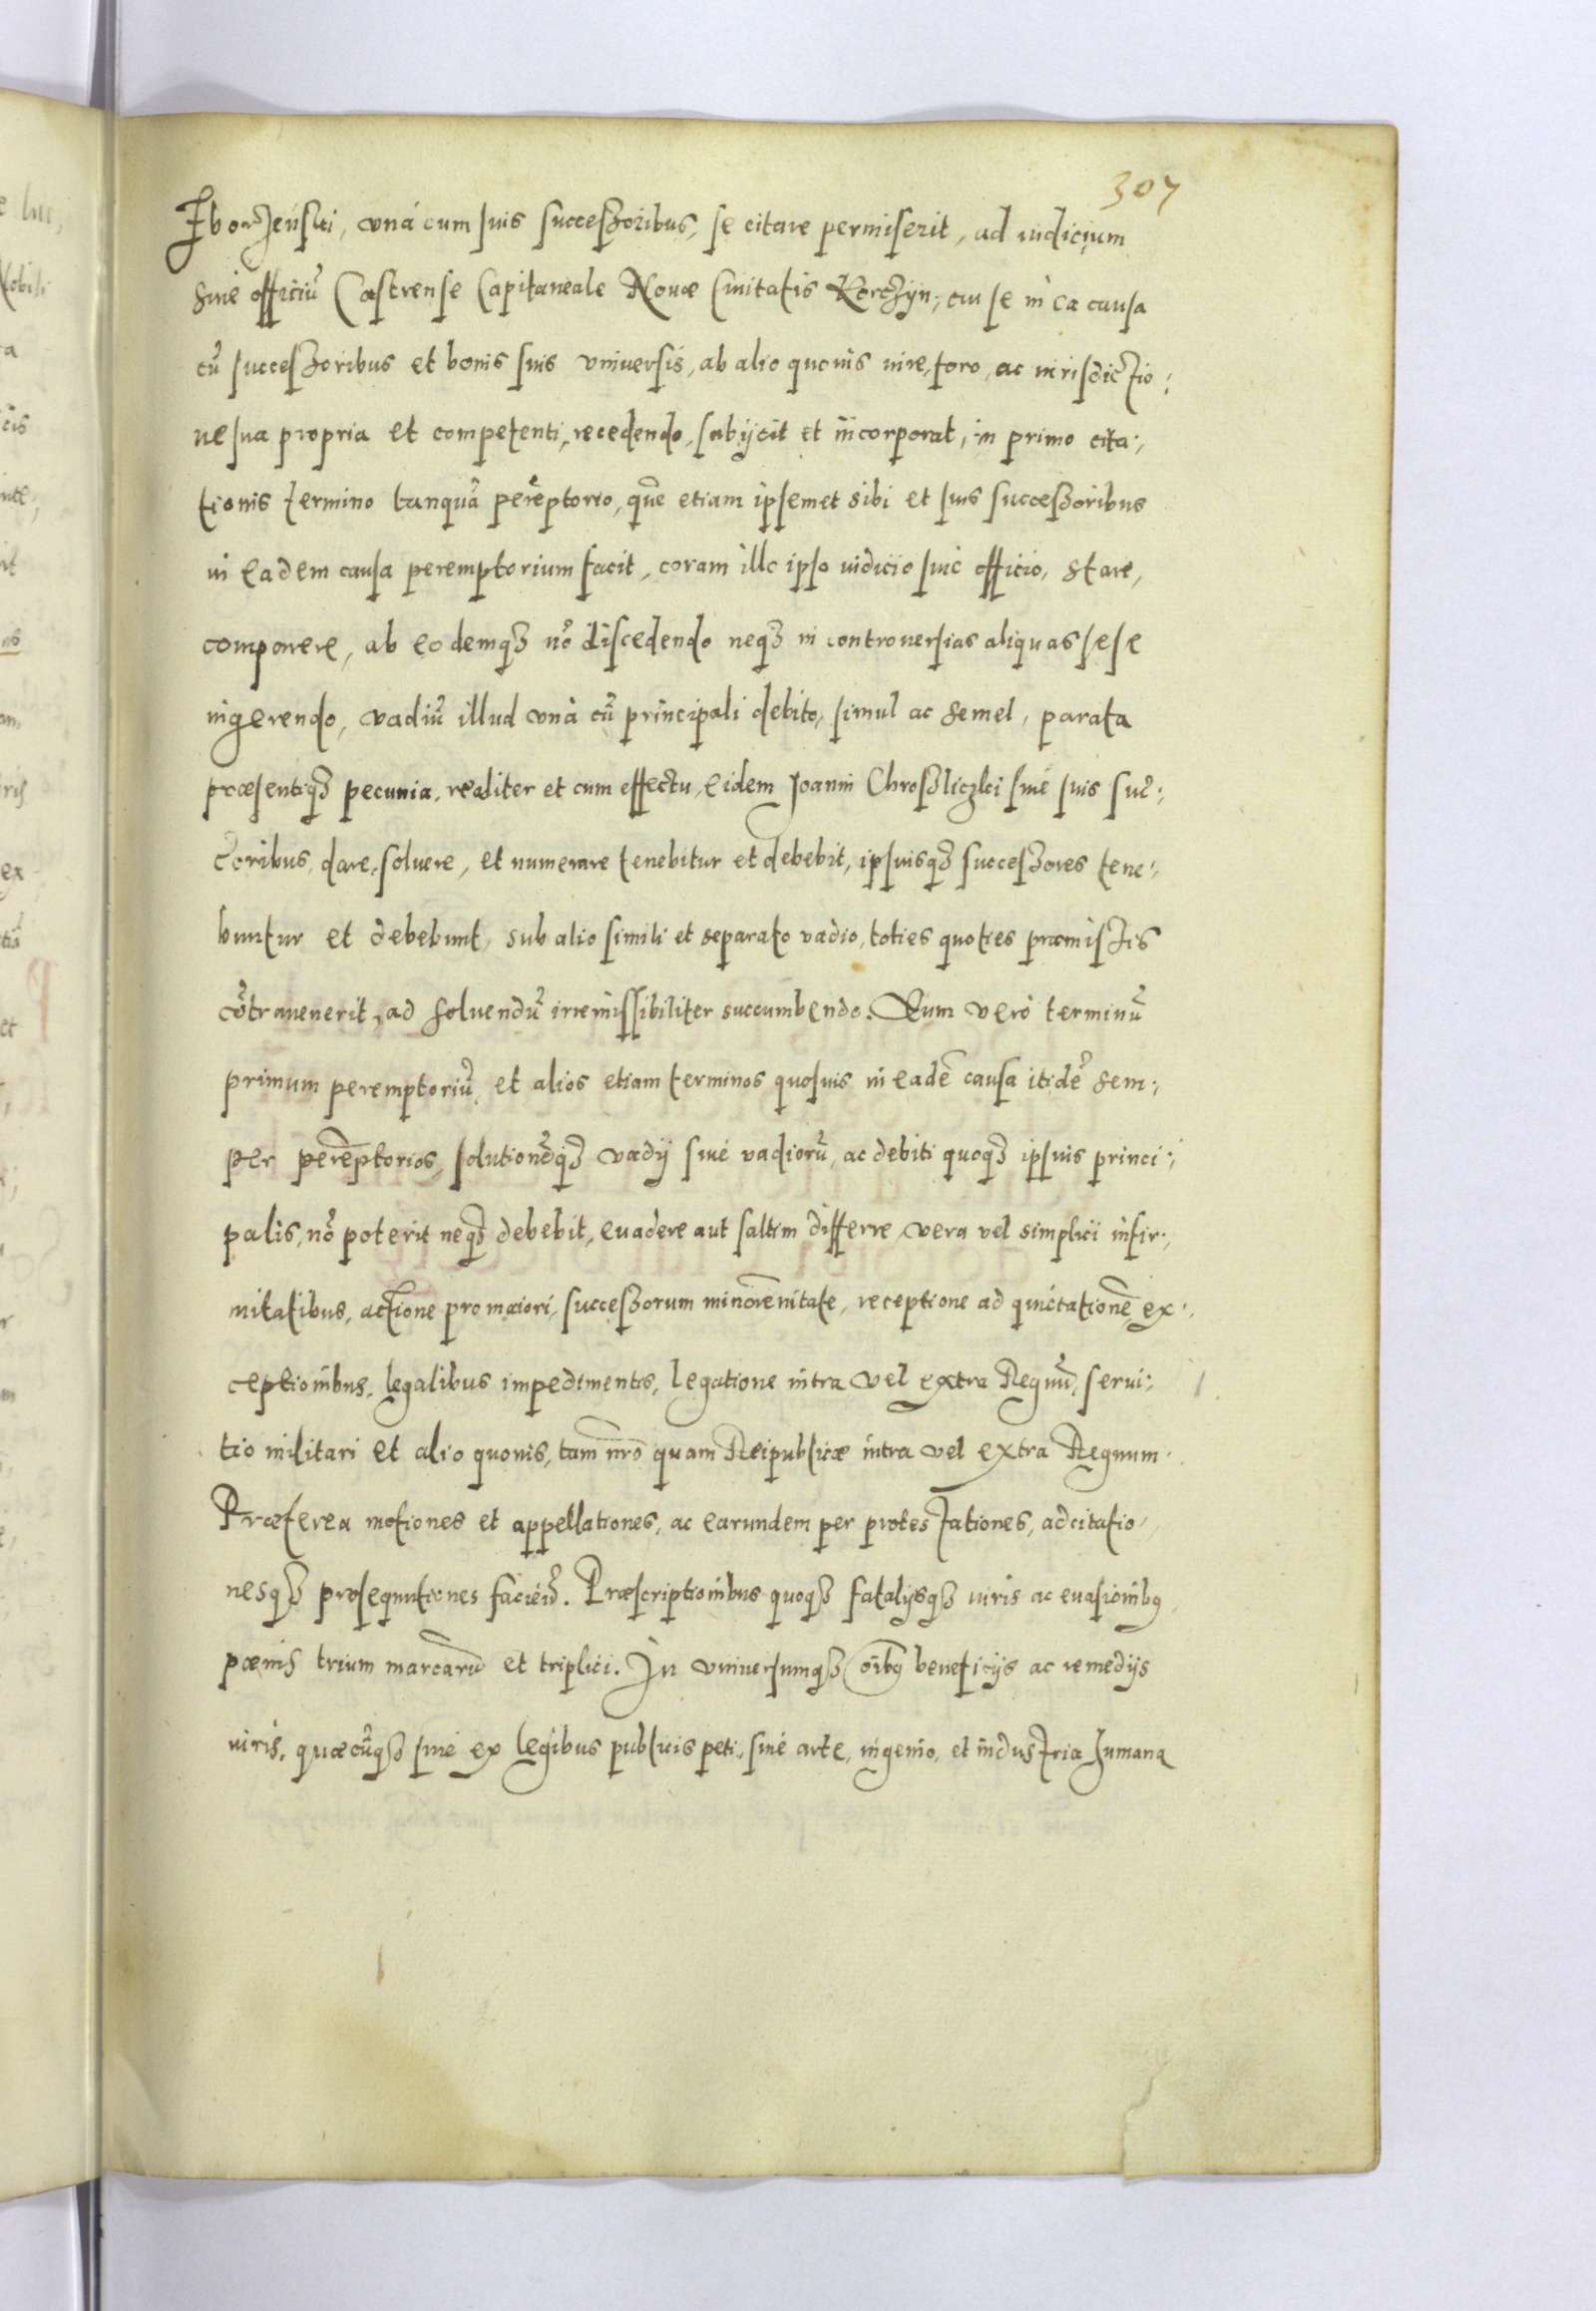 307
Zborzeński, vnà cum suis successoribus, se citare permiserit, ad iudicium
siue officiũ Castrense Capitaneale Nouæ Ciuitatis Korczyn; cui se in ea causa
cũ successoribus et bonis suis vniuersis, ab alio quouis iure, foro, ac iurisdictio:
ne sua propria et competenti, recedendo, subijcit et incorporat, in primo cita:,
tionis termino tanquã perẽptorio, quẽ etiam ipsemet sibi et suis successoribus
in eadem causa peremptorium facit, coram illo ipso iudicio siue officio, stare,
comparere, ab eodemq3 nõ discedendo neq3 in controuersias aliquas sese
ingerendo, vadiũ illud vnà cũ principali debito, simul ac semel, parata
præsentiq3 pecunia, realiter et cum effectu, eidem Joanni Chrosliczki siue suis suc̃:,
c̃oribus, dare, soluere, et numerare tenebitur et debebit, ipsiusq3 successores tene:,
buntur et debebunt, sub alio simili et separato vadio, toties quoties præmissis
cõtrauenerit, ad soluendũ irremissibiliter succumbendo. Eum verò terminũ
primum peremptoriũ, et alios etiam terminos quosuis in eadẽ causa itidẽ sem:,
per perẽptorios, solutionẽq3 vadij siue vadiorũ, ac debiti quoq3 ipsius princi:,
palis, nõ poterit neq3 debebit, euadere aut saltim differre, vera vel simplici infir:,
mitatibus, actione pro maiori, successorum minorẽnitate, receptione ad quictationẽ, ex:,
ceptionibus, legalibus impedimentis, legatione intra vel extra Regnũ, serui:,
tio militari et alio quouis, tam nr̃o quam Reipublicæ intra vel extra Regnum.
Præterea motiones et appellationes, ac earundem per protestationes, adcitatio,
nesq3 prosequutiones faciẽd. Præscriptionibus quoq3 fatalijsq3 iuris ac euasionibꝰ,
pœnis trium marcarũ et triplici. In vniuersumq3 oĩbꝰ beneficijs ac remedijs
iuris, quæcũq3 siue ex legibus publicis peti, siue arte, ingenio, et industria humana